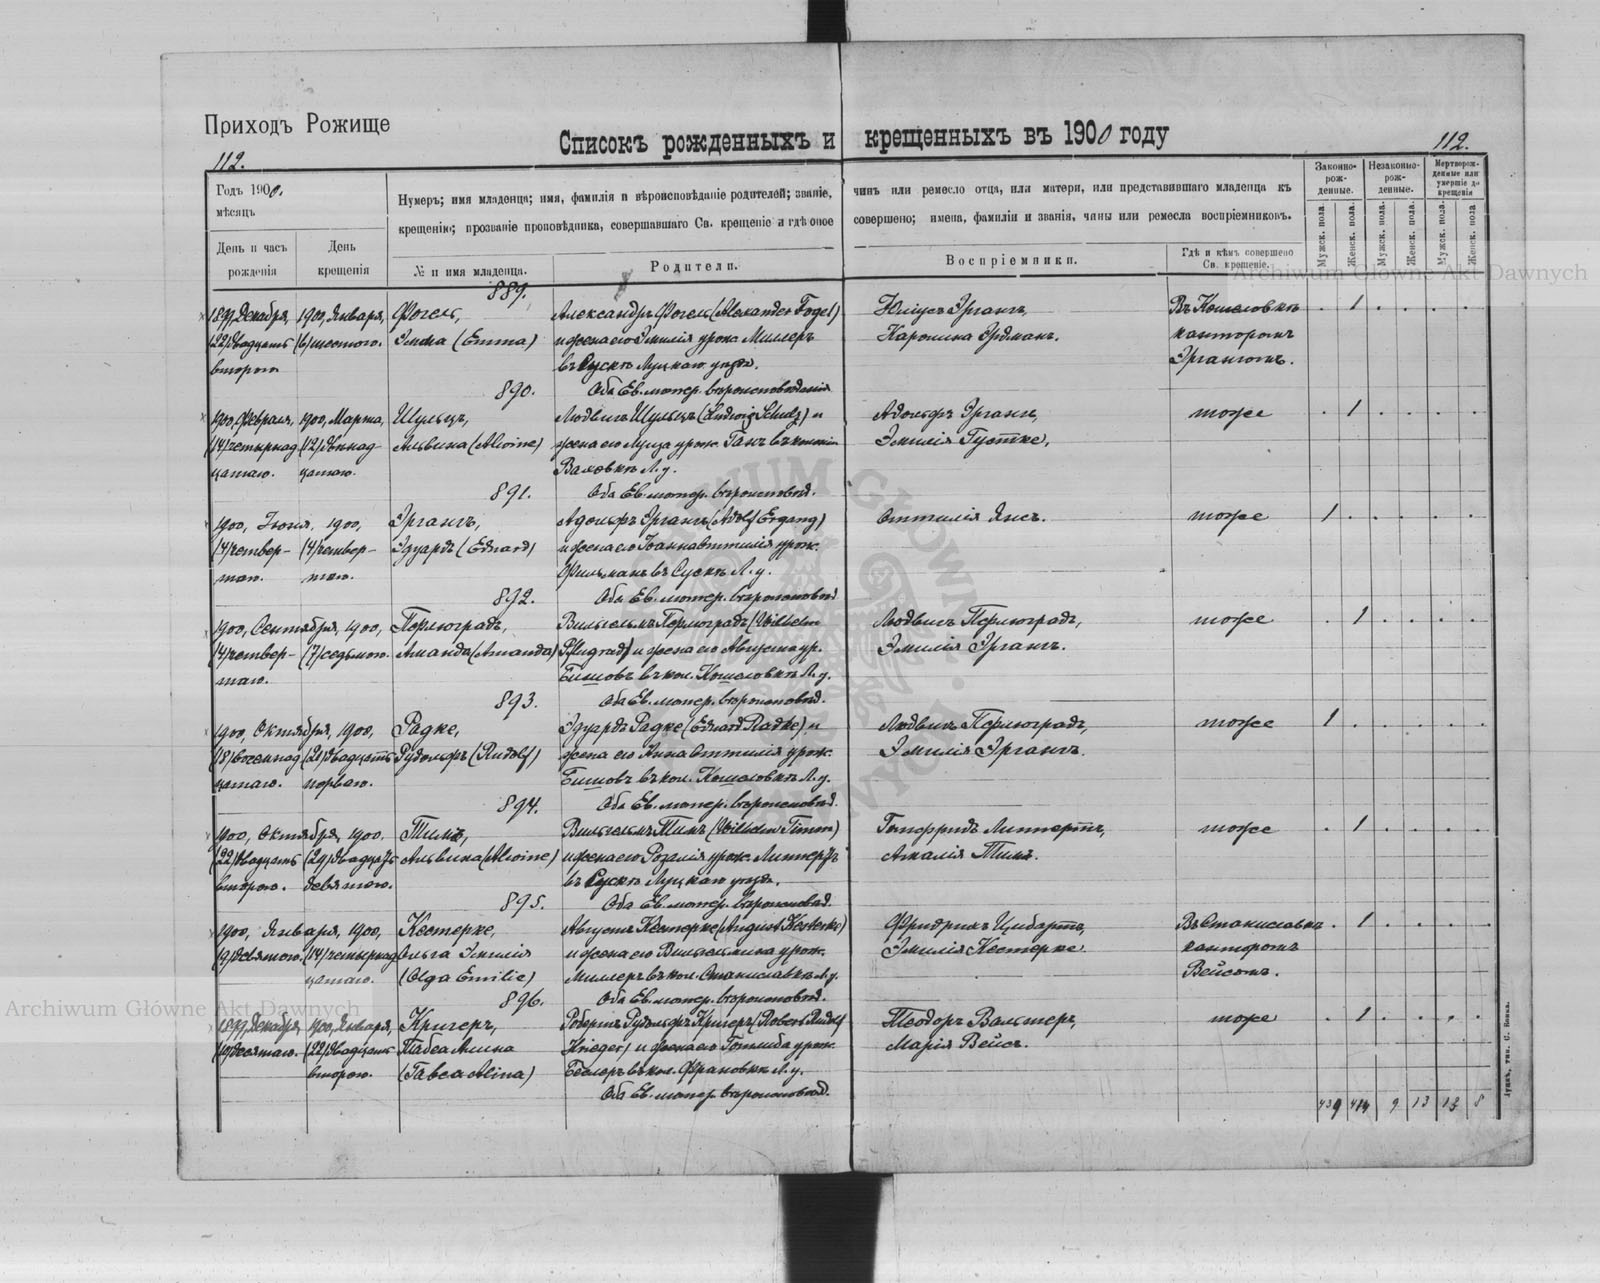 Приходъ Рожище
Списокъ рожденныхъ и крещенныхъ въ 1900 году
112.
112.
Годъ 1900.
мѣсяцъ
День и часъ рожденія
День крещенія
Нумеръ; имя младенца; имя, фамилія и вѣроисповѣданіе родителей; званіе, чинъ или ремесло отца, или матери, или представившаго младенца къ
крещенію; прозваніе проповѣдника, совершавшаго Св. крещеніе и гдѣ оное совершено; имена, фамиліи и званія, чины или ремесла воспріемниковъ.
№ и имя младенца.
Родители.
Воспріемники.
Гдѣ и кѣмъ совершено Св. крещеніе.
Законно-рож-денные.
Незаконно-рож-денные.
Мертворож-денные или умершіе до крещенія
Мужск. пола.
Женск. пола.
Мужск. пола.
Женск. пола.
Мужск. пола.
Женск. пола
889.
1899, Декабря, 1900, Января, Фогель, Александръ Фогель (Alexander Fogel) Юліусъ Эргангъ, Въ Кошеловкѣ . 1 . . . .
(22) двадцать (6) шестого. Эмма (Emma) и жена его Эмилія урож. Миллеръ Каролина Эрдманъ. канторомъ
второго въ Сускѣ Луцкаго уѣзда. Эргангомъ.
890. Оба Ев. лютер. вѣроисповѣданія
1900, Февраля, 1900, Марта, Шульцъ, Людвигъ Шульцъ (Ludwig Schulz) и Адольфъ Эргангъ, тоже . 1 . . . .
(14) четырнад- (12) двѣнад- Альвина (Alwine) жена его Луиза урож. Ганъ въ колоніи Эмилія Густке.
цатаго. цатаго. Л. у.
891. Оба Ев. лютер. вѣроисповѣд.
1900, Іюня, 1900, Эргангъ, Адольфъ Эргангъ (Adolf Ergang) Оттилія Янсъ. тоже 1 . . . . .
(4) четвер- (4) четвер- Эдуардъ (Eduard) и жена его Іоанна Оттилія урож.
таго. таго. въ Сускѣ Л. у.
892. Оба Ев. лютер. вѣроисповѣд.
1900, Сентября, 1900, Вильгельмъ (Wilhelm Людвигъ тоже . 1 . . . .
(4) четвер- (7) седьмого. Аманда (Amanda) Pflugrad) и жена его Августа ур. Эмилія Эргангъ.
таго. въ кол. Кошеловкѣ Л. у.
893. Оба Ев. лютер. вѣроисповѣд.
1900, Октября, 1900, Радке, Эдуардъ Радке (Eduard Radke) и Людвигъ тоже 1 . . . . .
(18) восемнад- (21) двадцать Рудольфъ (Rudolf) жена его Анна Оттилія урож. Эмилія Эргангъ.
цатаго. перваго. въ кол. Кошеловкѣ Л. у.
894. Оба Ев. лютер. вѣроисповѣд.
1900, Октября, 1900. Тимъ, Вильгельмъ Тимъ (Wilhelm Timm) Готфридъ Липпертъ, тоже . 1 . . . .
(22) двадцать (29) двадцать Альвина (Alwine) и жена его Розалія урож. Липпертъ Амалія Тимъ.
второго. девятаго. въ Сускѣ Луцкаго уѣзда.
895. Оба Ев. лютер. вѣроисповѣд.
1900, Января, 1900, Кестерке, Августъ Кестерке (August Kesterke) Фридрихъ Цибартъ, Въ Станиславкѣ . 1 . . . .
(9) девятаго. (14) четырнад- Ольга Эмилія и жена его Вильгельмина урож. Эмилія Кестерке. канторомъ
цатаго. (Olga Emilie) Миллеръ въ кол. Станиславкѣ Л. у. Вейсомъ.
896. Оба Ев. лютер. вѣроисповѣд.
1899, Декабря, 1900, Января, Кригеръ, Робертъ Рудольфъ Кригеръ (Robert Rudolf Теодоръ Вальтеръ, тоже . 1 . . . .
десятаго. (22) двадцать Табеа Алина Krieger) и жена его Готлиба урож. Марія Вейсъ.
второго. (Tabea Alina) въ кол. Л. у.
Оба Ев. лютер. вѣроисповѣд.
439 484 9 13 13 8
Луцкъ, тип. С. Бокал.
Archiwum Główne Akt Dawnych
Archiwum Główne Akt Dawnych